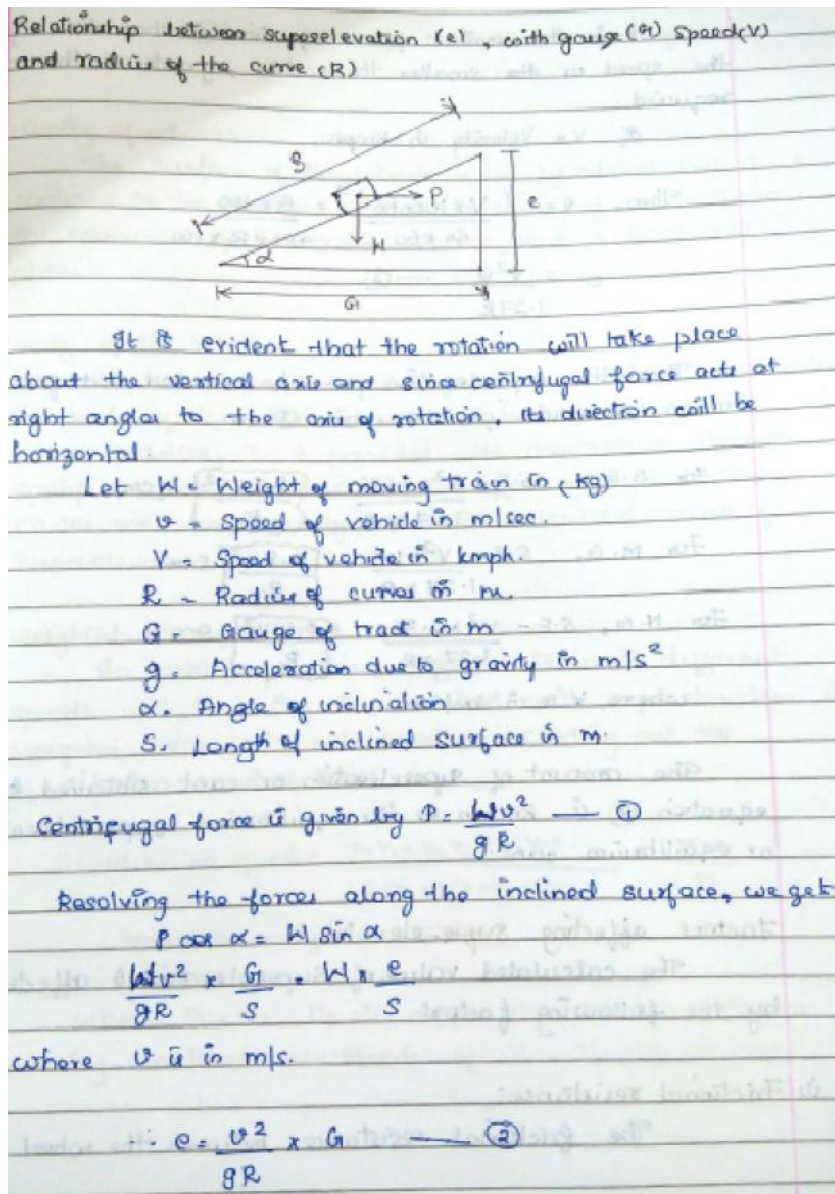 Relationship between superelevation (e), with gauge (G) speed (V)
and radius of the curve (R)
S
P
e
W
α
G
It is evident that the rotation will take place
about the vertical axis and since centrifugal force acts at
right angles to the axis of rotation, its direction will be
horizontal
Let W = Weight of moving train in (kg)
v = Speed of vehicle in m/sec.
V = Speed of vehicle in kmph.
R = Radius of curves in m.
G = Gauge of tract in m
g = Acceleration due to gravity in m/s²
α = Angle of inclination
S = Length of inclined surface in m
Centrifugal force is given by P = Wv²/gR — ①
Resolving the forces along the inclined surface, we get
P cos α = W sin α
Wv²/gR × G/S = W × e/S
where v is in m/s.
∴ e = v²/gR × G — ②